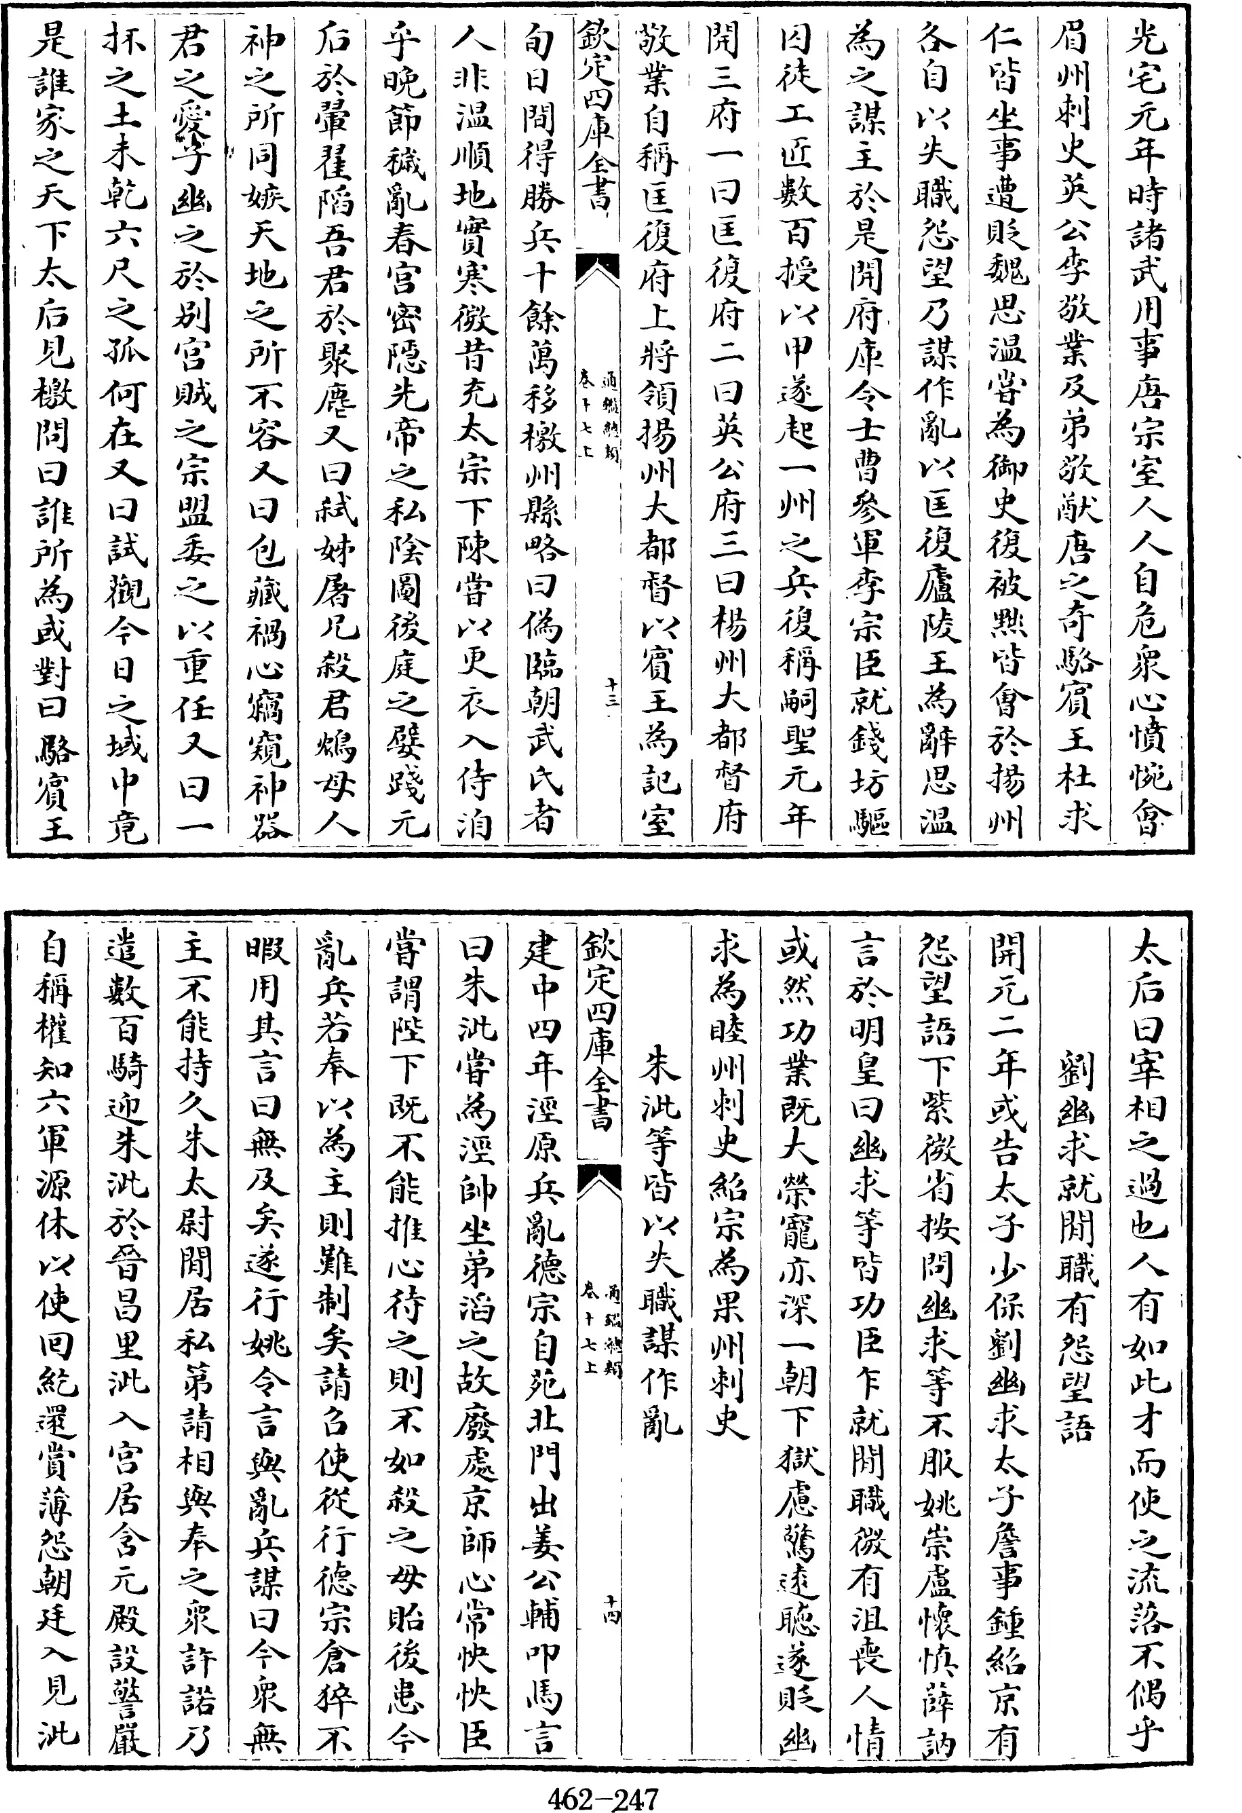 光宅元年時諸武用事唐宗室人人自危衆心憤惋會
眉州刺史英公李敬業及弟敬猷唐之奇駱賓王杜求
仁皆坐事遭貶魏思温嘗為御史復被黜皆會於揚州
各自以失職怨望乃謀作亂以匡復廬陵王為辭思温
為之謀主於是開府庫令士曹參軍李宗臣就錢坊驅
囚徒工匠數百授以甲遂起一州之兵復稱嗣聖元年
開三府一曰匡復府二曰英公府三曰楊州大都督府
敬業自稱匡復府上將領揚州大都督以賓王為記室
欽定四庫全書
通鑑總類
卷十七上
十三
旬日間得勝兵十餘萬移檄州縣略曰偽臨朝武氏者
人非温順地實寒微昔充太宗下陳嘗以更衣入侍洎
乎晩節穢亂春宫密隱先帝之私陰圖後庭之嬖踐元
后於翬翟䧟吾君於聚麀又曰弑姊屠兄殺君鴆母人
神之所同嫉天地之所不容又曰包藏禍心竊窺神器
君之愛子幽之於别宫賊之宗盟委之以重任又曰一
抔之土未乾六尺之孤何在又曰試觀今日之域中竟
是誰家之天下太后見檄問曰誰所為或對曰駱賓王
太后曰宰相之過也人有如此才而使之流落不偶乎
劉幽求就閒職有怨望語
開元二年或告太子少保劉幽求太子詹事鍾紹京有
怨望語下紫微省按問幽求等不服姚崇盧懷慎薛訥
言於明皇曰幽求等皆功臣乍就閒職微有沮喪人情
或然功業既大榮寵亦深一朝下獄慮驚逺聽遂貶幽
求為睦州刺史紹宗為果州刺史
朱泚等皆以失職謀作亂
欽定四庫全書
通鑑總類
卷十七上
十四
建中四年涇原兵亂德宗自苑北門出姜公輔叩馬言
曰朱泚嘗為涇帥坐弟滔之故廢處京師心常怏怏臣
嘗謂陛下既不能推心待之則不如殺之毋貽後患今
亂兵若奉以為主則難制矣請召使從行德宗倉猝不
暇用其言曰無及矣遂行姚令言與亂兵謀曰今衆無
主不能持久朱太尉閒居私第請相與奉之衆許諾乃
遣數百騎迎朱泚於晉昌里泚入宫居含元殿設警嚴
自稱權知六軍源休以使回紇還賞薄怨朝廷入見泚
462-247